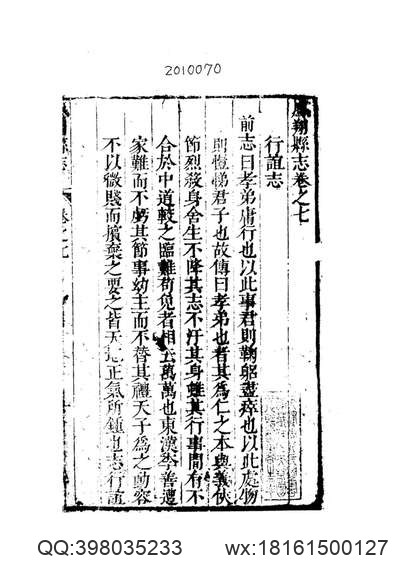 2010070
鳳翔縣志卷之七
行誼志
前志曰孝弟庸行也以此事君則鞠躬盡瘁也以此處物
則愷悌君子也故傳曰孝弟也者其為仁之本與義俠
節烈殺身舍生不降其志不汙其身雖其行事間有不
合於中道較之臨難苟免者相去萬萬也東漢李善遭
家難而不虧其節事幼主而不替其禮天子為之動容
不以微賤而擯棄之要之皆天地正氣所鍾也志行誼
縣志 卷之七
QQ:398035233 wx:18161500127